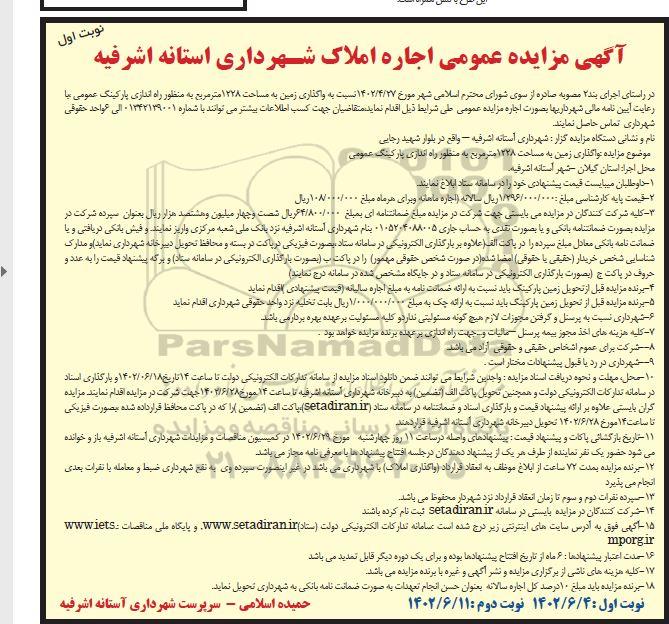 این طرح با تنش همراه است.
نوبت اول
آگهی مزایده عمومی اجاره املاک شهرداری استانه اشرفیه
در راستای اجرای بند۲ مصوبه صادره از سوی شورای محترم اسلامی شهر مورخ ۱۴۰۲/۴/۲۷نسبت به واگذاری زمین به مساحت ۱۲۲۸مترمربع به منظور راه اندازی پارکینگ عمومی ،با
رعایت آیین نامه مالی شهرداریها بصورت اجاره مزایده عمومی طی شرایط ذیل اقدام نماید،متقاضیان جهت کسب اطلاعات بیشتر می توانند با شماره ۰۱۳۴۲۱۳۹۰۰۱ الی ۶واحد حقوقی
شهرداری تماس حاصل نمایند.
نام و نشانی دستگاه مزایده گزار : شهرداری آستانه اشرفیه – واقع در بلوار شهید رجایی
موضوع مزایده :واگذاری زمین به مساحت ۱۲۲۸مترمربع به منظور راه اندازی پارکینگ عمومی
محل اجرا: استان گیلان –شهر آستانه اشرفیه.
۱-داوطلبان میبایست قیمت پیشنهادی خود را در سامانه ستاد ابلاغ نمایند.
۲-قیمت پایه کارشناسی مبلغ :۱/۲۹۶/۰۰۰/۰۰۰ریال سالانه (اجاره ماهانه وبرای هرماه مبلغ ۱۰۸/۰۰۰/۰۰۰ریال
۳-کلیه شرکت کنندگان در مزایده می بایستی جهت شرکت در مزایده مبلغ ضمانتنامه ای بمبلغ ۶۴/۸۰۰/۰۰۰ریال شصت وچهار میلیون وهشتصد هزار ریال بعنوان سپرده شرکت در
مزایده بصورت ضمانتنامه بانکی و یا بصورت نقدی به حساب جاری ۰۱۰۵۲۰۴۰۸۸۰۰۵ بنام شهرداری آستانه اشرفیه نزد بانک ملی شعبه مرکزی واریز نمایند. و فیش بانکی دریافتی و یا
ضمانت نامه بانکی معادل مبلغ سپرده را در پاکت الف(علاوه بر بارگذاری الکترونیکی در سامانه ستاد ،بصورت فیزیکی درپاکت در بسته و محافظ تحویل دبیرخانه شهرداری نماید)و مدارک
شناسایی شخص خریدار (حقیقی یا حقوقی) امضا شده(در صورت شخص حقوقی ممهور) را در پاکت ب (بصورت بارگذاری الکترونیکی در سامانه ستاد) و برگه پیشنهاد قیمت را به عدد و
حروف در پاکت ج (بصورت بارگذاری الکترونیکی در سامانه ستاد و در جایگاه مشخص شده در سامانه درج نمایند)
۴-برنده مزایده قبل ازتحویل زمین پارکینگ باید نسبت به ارائه ضمانت نامه به مبلغ اجاره سالیانه (قیمت پیشنهادی )اقدام نماید
۵-برنده مزایده قبل از تحویل زمین پارکینگ باید نسبت به ارائه چک به مبلغ ۱/۰۰۰/۰۰۰/۰۰۰ریال بابت تخلیه نزد واحد حقوقی شهرداری اقدام نماید
۶-شهرداری نسبت به پرسنل و گرفتن مجوزات لازم هیچ گونه مسئولیتی نداردو کلیه مسئولیت برعهده بهره بردارمی باشد.
۷-کلیه هزینه های اخذ مجوز بیمه پرسنل –مالیات و...جهت راه اندازی برعهده برنده مزایده خواهد بود .
۸-شرکت برای عموم اشخاص حقیقی و حقوقی آزاد می باشد.
۹-شهرداری در رد یا قبول پیشنهادات مختار است .
۱۰-محل، مهلت و نحوه دریافت اسناد مزایده : واجدین شرایط می توانند ضمن دانلود اسناد مزایده از سامانه تدارکات الکترونیکی دولت تا ساعت ۱۴تاریخ۱۴۰۲/۰۶/۱۸و بارگذاری اسناد
در سامانه تدارکات الکترونیکی دولت و همچنین تحویل پاکت الف (تضمین) به دبیرخانه شهرداری آستانه اشرفیه تا ساعت ۱۴ مورخ ۱۴۰۲/۶/۲۸جهت شرکت در مزایده اقدام نمایند. مزایده
گران بایستی علاوه بر ارائه پیشنهاد قیمت و بارگذاری اسناد و ضمانتنامه در سامانه ستاد (setadiran.ir)پاکت الف (تضمین )را که در پاکت محافظ قرارداده شده بصورت فیزیکی
تا ساعت۱۴مورخ ۱۴۰۲/۶/۲۸ تحویل دبیرخانه شهرداری آستانه اشرفیه قراردهند.
۱۱-تاریخ بازگشائی پاکات و پیشنهاد قیمت : پیشنهادهای واصله درساعت ۱۱ روز چهارشنبه مورخ ۱۴۰۲/۶/۲۹ در کمیسیون مناقصات و مزایدات شهرداری آستانه اشرفیه باز و خوانده
می شود حضور یک نفر نماینده از طرف هر یک از پیشنهاد دهندگان درجلسه افتتاح پیشنهاد ها با معرفی نامه مجاز می باشد.
۱۲-برنده مزایده بمدت ۷۲ ساعت از ابلاغ موظف به انعقاد قرارداد (واگذاری املاک) با شهرداری می باشد در غیر اینصورت سپرده وی به نفع شهرداری ضبط و معامله با نفرات بعدی
انجام می پذیرد
۱۳-سپرده نفرات دوم و سوم تا زمان انعقاد قرارداد نزد شهرداری محفوظ می باشد.
۱۴-شرکت کنندگان در مزایده بایستی در سامانه setadiran.ir ثبت نام کرده باشند
۱۵-آگهی فوق به آدرس سایت های اینترنتی زیر درج شده است :سامانه تدارکات الکترونیکی دولت (ستاد)www.setadiran.ir. و پایگاه ملی مناقصات :www.iets.
mporg.ir
۱۶-مدت اعتبار پیشنهادها : ۶ ماه از تاریخ افتتاح پیشنهادها بوده و برای یک دوره دیگر قابل تمدید می باشد
۱۷-کلیه هزینه های ناشی از برگزاری مزایده و نشر آگهی و غیره با برنده مزایده می باشد.
۱۸-برنده مزایده باید مبلغ ۱۰درصد کل اجاره سالانه بعنوان حسن انجام تعهدات به صورت ضمانت نامه بانکی به شهرداری تحویل نماید.
نوبت اول :۱۴۰۲/۶/۴ نوبت دوم :۱۴۰۲/۶/۱۱
حمیده اسلامی – سرپرست شهرداری آستانه اشرفیه
ParsNamadData